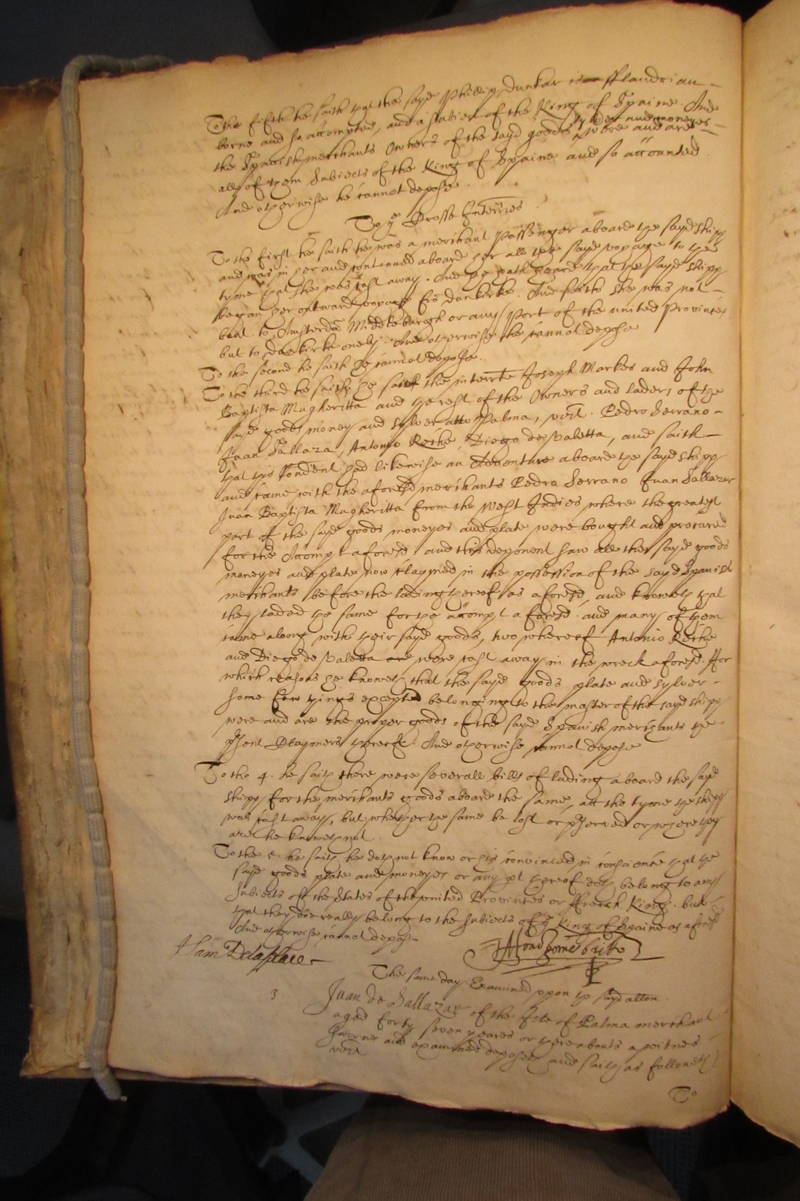 To the fifth he saith that the sayd Phillip dunkar is fflandrian
borne and so accompted, and a subiect of the King of Spaine And
the Spanish merchants Owners of the sayd goods sylver and moneyes were and are
all of them Subiects of the King of Spaine and so accounted
And otherwise he cannot depose.
To ye Crosse Interries.
To the first he saith he was a merchant Passenger aboard the sayd shipp
and was in her and continued aboard her all the sayd voyage to the
tyme that she was cast away. And he hath heard that the sayd shipp
began her outward voyage from dunkerke. And saith she was not
bound to Amsterdam Middleborgh or any Port of the united Provinces
but to dunkirk onely. And otherwise the cannot depose
To the second he saith he cannot depose.
To the third he saith he saith the interrte Joseph Markes and John
Baptista Magheritta and the rest of the Owners and laders of the
sayd goods money and sylver att Palma, vizt. Pedro Serrano
Juan Sallazar, Antonio Rocke, Diego de Valetta, and saith
that this rendent had likewise an Adventure aboard the sayd shipp
and came with the aforesd merchants Pedro Serrano Juan Sallazar
Juan Baptista Magheritta from the West Indies where the greatest
part of the sayd goods moneyes and plate were bought and procured
for the Accompt aforesd and this deponent saw all the sayd goods
moneyes and plate now claymed in the possession of the sayd Spanish
merchants before the lading thereof as aforesd, and knoweth that
they laded the same for the accompt aforesd and many of them
came along with their sayd goods, two whereof Antonio Rocke
and Diego de Valetta were cast away in the wreck aforesd ffor
which reasons he knoweth that the sayd goods plate and sylver
some few things excepted belonging to the master of the sayd shipp
were and are the proper goods of the sayd Spanish merchants the
pnt Claymers thereof. And otherwise cannot depose
To the 4. he saith there were severall bills of lading aboard the sayd
shipp for the merchants goods aboard the same, att the tyme the shipp
was cast away, but whether the same be lost or pserved or where they
are he knoweth not.
To the 5. he saith he doth not know or is convinced in conscience that the
sayd goods plate and moneyes or any pt thereof doth belong to any
Subiects of the States of the united Provinces or ffrench King. but
that they doe really belong to the Subiects of ye King of Spaine as aforesd
And otherwise cannot depose
The same day. Examined upon the sayd allon.
3
Juan de Sallazar of the Isle of Palma merchant
aged forty seven yeares or thereabouts a witnes
sworne and examined deposeth and saith as followeth
vizt.
To